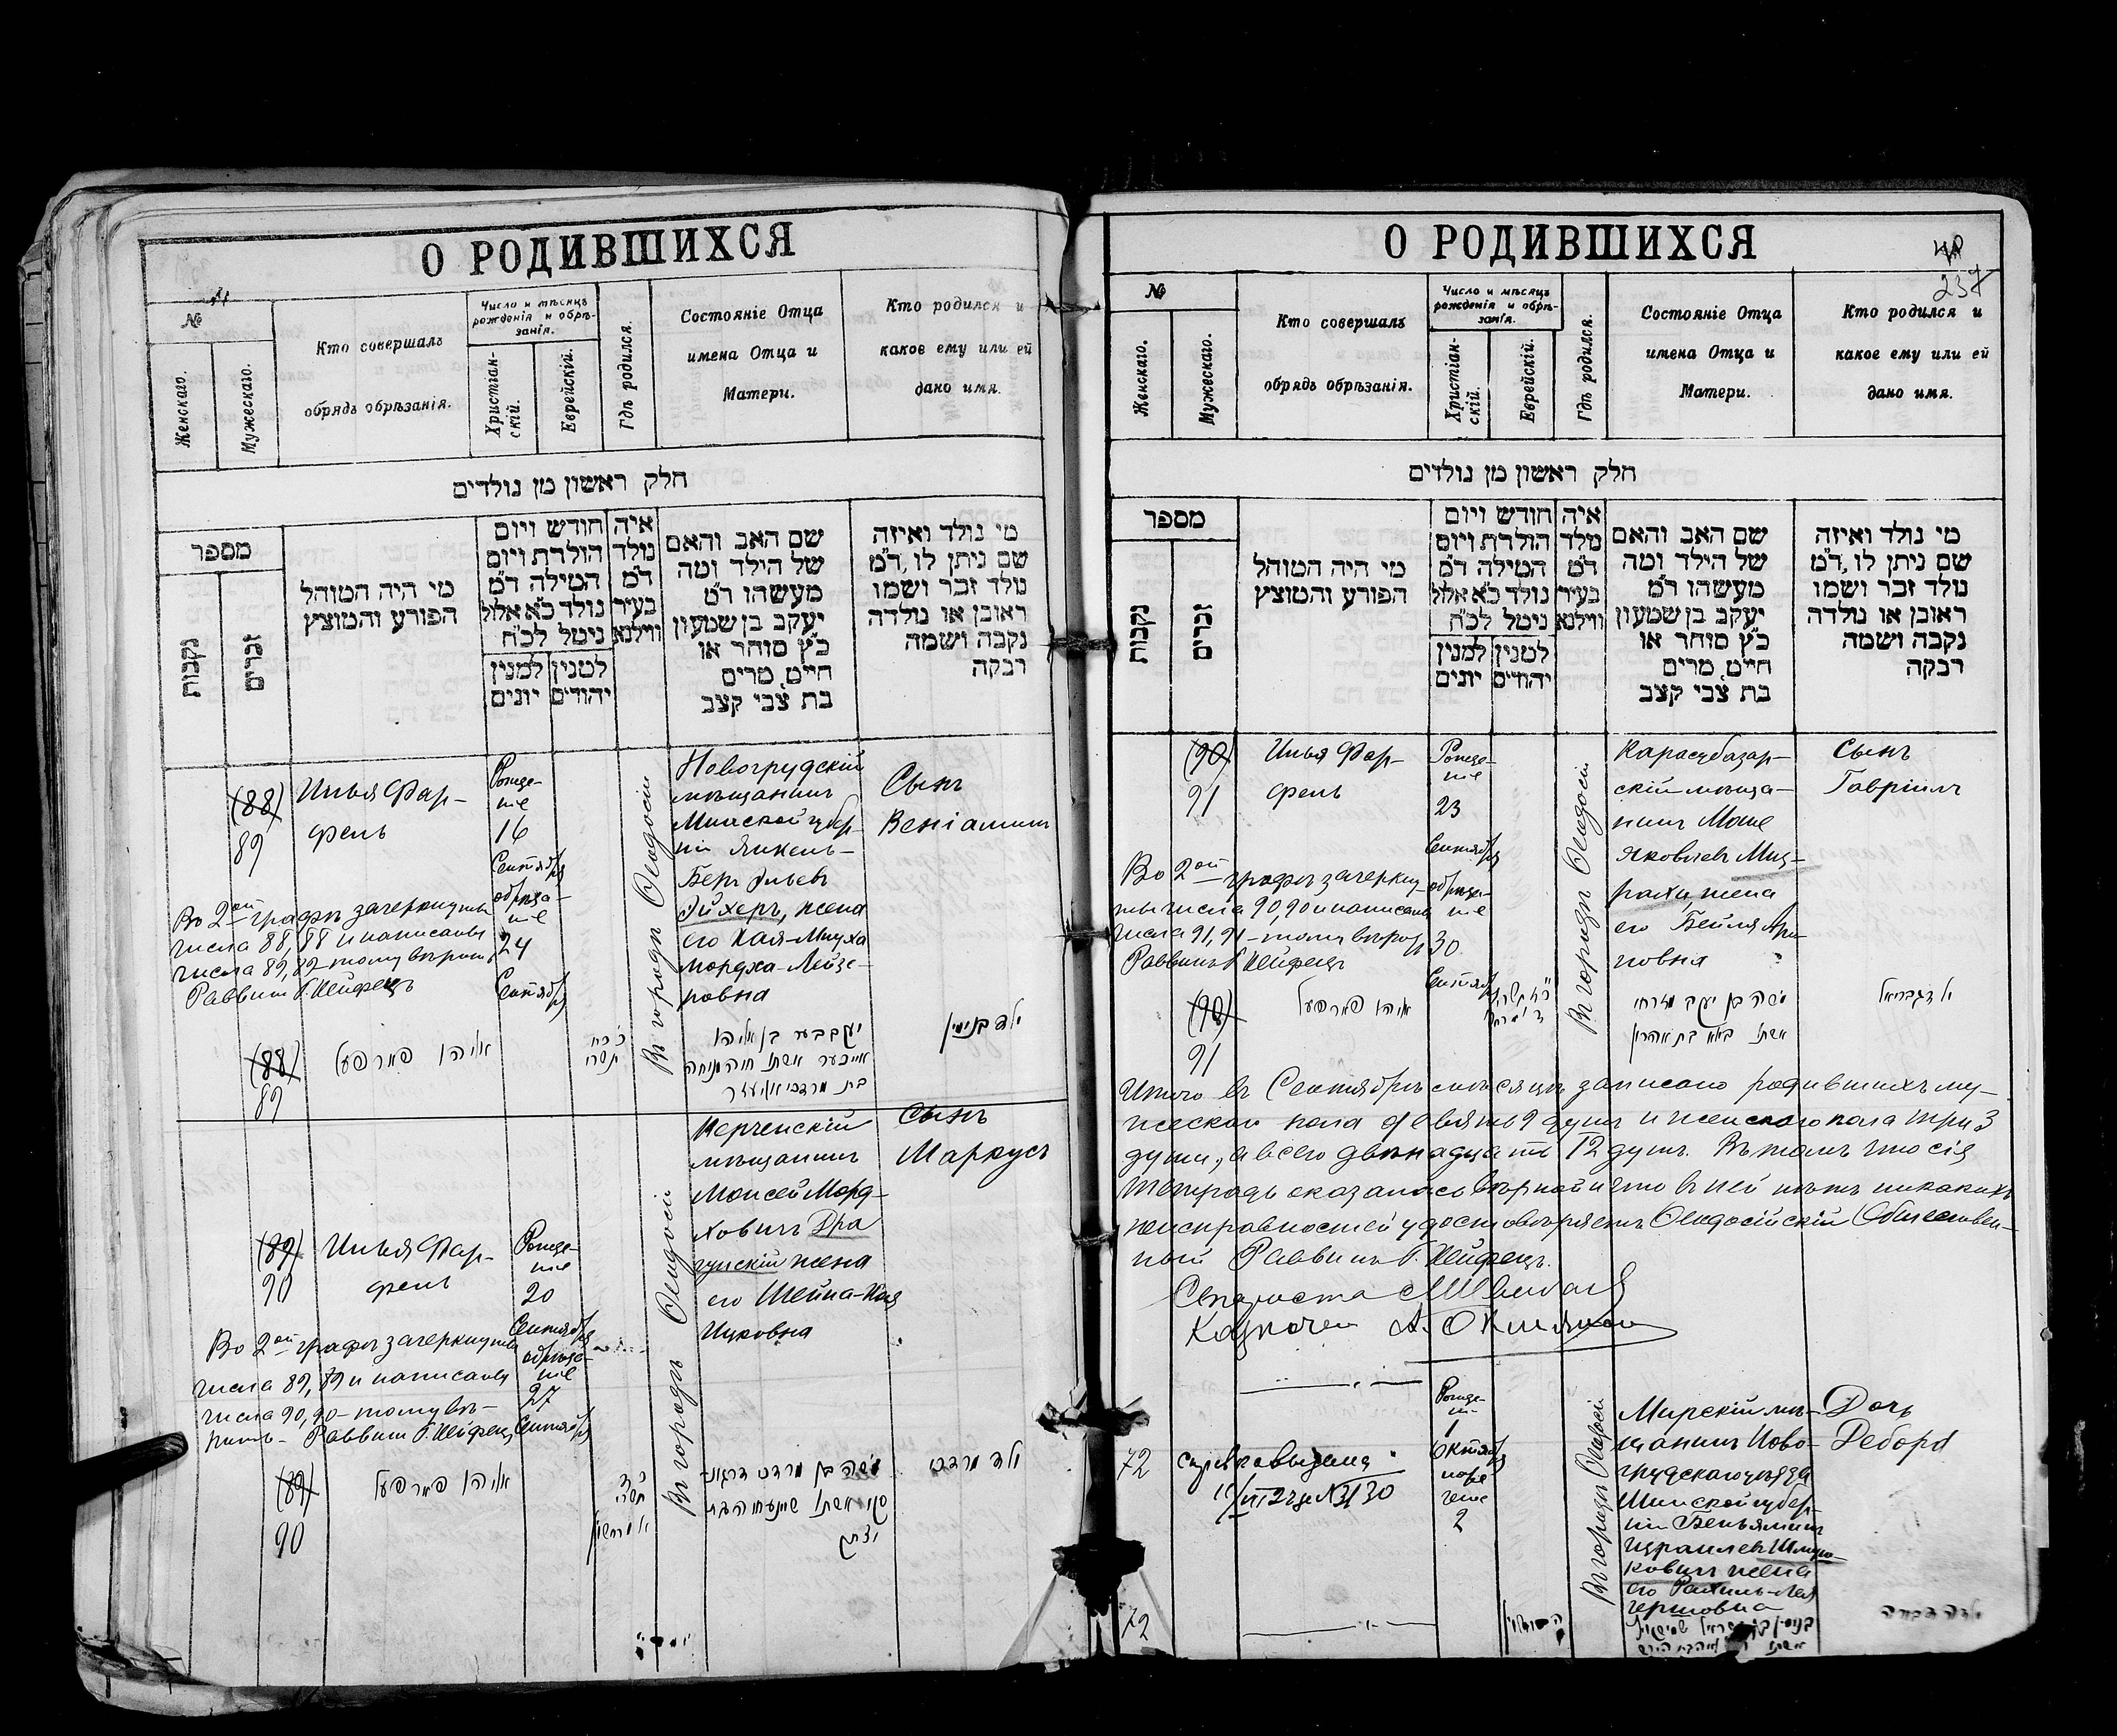 О РОДИВШИХСЯ
№
Женскаго.
Мужескаго.
Кто совершалъ
обрядъ обрѣзанія.
Число и мѣсяцъ
рожденія и обрѣ-
занія.
Христіан-
скій.
Еврейскій.
Гдѣ родился.
Состояніе Отца
имена Отца и
Матери.
Кто родился и
какое ему или ей
дано имя.
חלק ראשון מן נולדים
מספר
נקבות
זכרים
מי היה המוהל
הפורע והמוצץ
חודש ויום
הולדת ויום
המילה ד״מ
נולד כ״א אלול
ניטל לכ״ח
למנין
יונים
למנין
יהודים
איה
נולד
ד״מ
בעיר
ווילנא
שם האב והאם
של הילד ומה
מעשהו ד״מ
יעקב בן שמעון
כ״ץ סוחר או
חייט, מרים
בת צבי קצב
מי נולד ואיזה
שם ניתן לו, ד״מ
נולד זכר ושמו
ראובן או נולדה
נקבה ושמה
רבקה
(88)
89
Илья Фар-
фель
Рожде-
ніе
16
Сентября
обрѣза-
ніе
24
Сентября
Въ городѣ Ѳеодосіи
Новогрудскій
мѣщанинъ
Минской губер-
ніи Янкель-
Беръ Эльевъ
Эйхеръ, жена
его Хая-Мнуха
Мордха-Лейзе-
ровна
Сынъ
Веніаминъ
Во 2ой графѣ зачеркнуты
числа 88, 88 и написаны
числа 89, 89 тому вѣрить,
Раввинъ Г. Хейфецъ
(88)
89
אליהו פארפעל
כ״ח
תשרי
יעקב בער בן אליהו
אייכער אשתו חיה מנוחה
בת מרדכי אליעזר
ילד בנימין
(89)
90
Илья Фар-
фель
Рожде-
ніе
20
Сентября
обрѣза-
ніе
27
Сентября
Въ городѣ Ѳеодосіи
Керченскій
мѣщанинъ
Моисей Морд-
ховичъ Дра
гунскій жена
его Шейна-Хая
Ицковна
Сынъ
Маркусъ
Во 2ой графѣ зачеркнуты
числа 89, 89 и написаны
числа 90, 90 – тому вѣ-
рить – Раввинъ Г. Хейфецъ
(89)
90
אליהו פארפעל
כ״ד
תשרי
משה בן מרדכי דראגונ-
סקי אשתו שיינע חיה בת
יצחק
ילד מרדכי
О РОДИВШИХСЯ
237
№
Женскаго.
Мужескаго.
Кто совершалъ
обрядъ обрѣзанія.
Число и мѣсяцъ
рожденія и обрѣ-
занія.
Христіан-
скій.
Еврейскій.
Гдѣ родился.
Состояніе Отца
имена Отца и
Матери.
Кто родился и
какое ему или ей
дано имя.
חלק ראשון מן נולדים
מספר
נקבות
זכרים
מי היה המוהל
הפורע והמוצץ
חודש ויום
הולדת ויום
המילה ד״מ
נולד כ״א אלול
ניטל לכ״ח
למנין
יונים
למנין
יהודים
איה
מלד
ד״מ
בעיר
ווילנא
שם האב והאם
של הילד ומה
מעשהו ד״מ
יעקב בן שמעון
כ״ץ סוחר או
חייט, מרים
בת צבי קצב
מי נולד ואיזה
שם ניתן לו, ד״מ
נולד זכר ושמו
ראובן או נולדה
נקבה ושמה
רבקה
(90)
91
Илья Фар-
фель
Рожде-
ніе
23
Сентября
обрѣза-
ніе
30
Сентября
Въ городѣ Ѳеодосіи
Карасубазар-
скій мѣща-
нинъ Моше
Яковлевъ Миз-
рахи, жена
его Бейля Аро-
новна
Сынъ
Гавріилъ
Во 2ой графѣ зачеркну-
ты числа 90, 90 и написаны
числа 91, 91 – тому вѣрить
Раввинъ Г. Хейфецъ
(90)
91
אליהו פארפעל
משה בן יעקב מזרחי
אשתו בילא בת אהרון
ילד גבריאל
Итого въ Сентябрѣ мѣсяцѣ записано родившихъ му-
жескаго пола девять 9 душъ и женскаго пола три 3
души, а всего двѣнадцать 12 душъ. Въ томъ что сія
тетрадь оказалась вѣрной и что въ ней нѣтъ никакихъ
неисправностей удостовѣряетъ Ѳеодосійскій Обществен-
ный Раввинъ Г. Хейфецъ.
Староста
Казначей
72
справка выдана
Рожде-
ніе
1
Октября
наре
ченіе
2
Въ городѣ Ѳеодосіи
Мирскій мѣ-
щанинъ Ново-
грудскаго уѣзда
Минской губер-
ніи Беньяминъ
Израилевъ Шмуш-
ковичъ жена
его Рахиль-Лея
Гершовна
Дочь
Дебора
72
ילדה דבורה